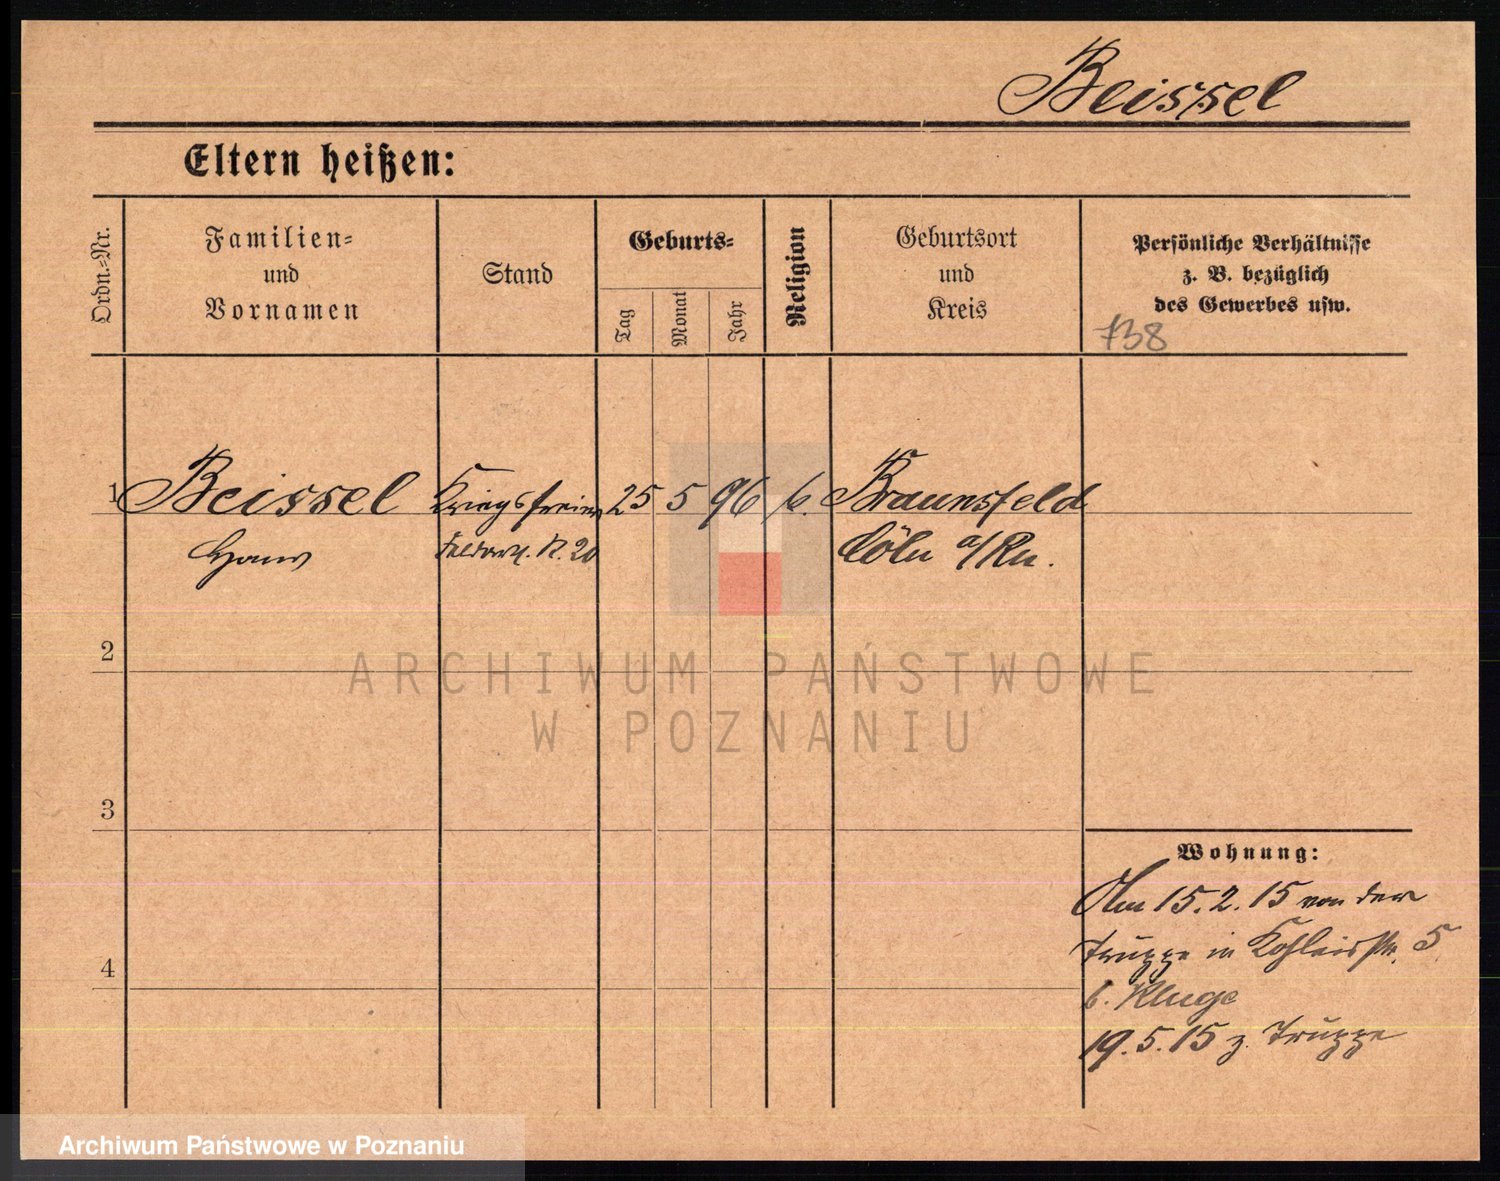 Beissel
Eltern heißen:
Ordn.-Nr.
Familien-
und
Vornamen
Stand
Geburts-
Tag
Monat
Jahr
Religion
Geburtsort
und
Kreis
Persönliche Verhältnisse
z. B. bezüglich
des Gewerbes usw.
738
1 Beissel Kriegsfreiw 25 5 96 k. Braunsfeld
Hans Feldart. R. 20 Cöln a/Rh.
2
ARCHIWUM PAŃSTWOWE
W POZNANIU
3
Wohnung:
Am 15.2.15 von der
Truppe in 5
b. Kluge
4
19.5.15 z. Truppe
Archiwum Państwowe w Poznaniu